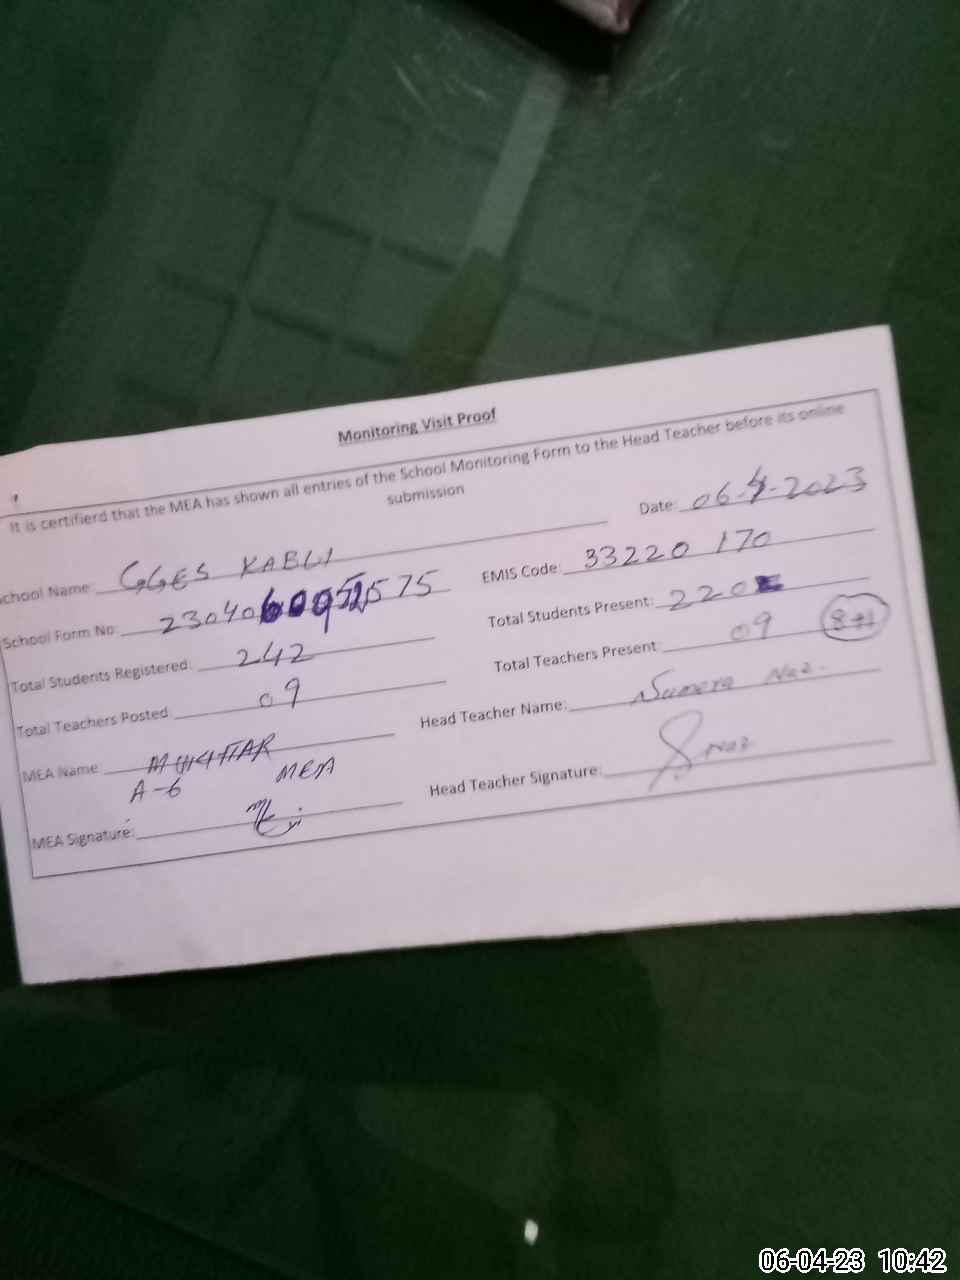 Monitoring Visit Proof
It is certifierd that the MEA has shown all entries of the School Monitoring Form to the Head Teacher before its online
submission
Date: 06-4-2023
School Name: GGES KABLI
EMIS Code: 33220170
School Form No: 23040
Total Students Present: 220
Total Students Registered: 242
Total Teachers Present: 09 8+1
Total Teachers Posted 09
Head Teacher Name: Sumera Naz.
MEA Name: MUKHTAR
A-6 MEA
Head Teacher Signature: SNaz
MEA Signature:
06-04-23 10:42